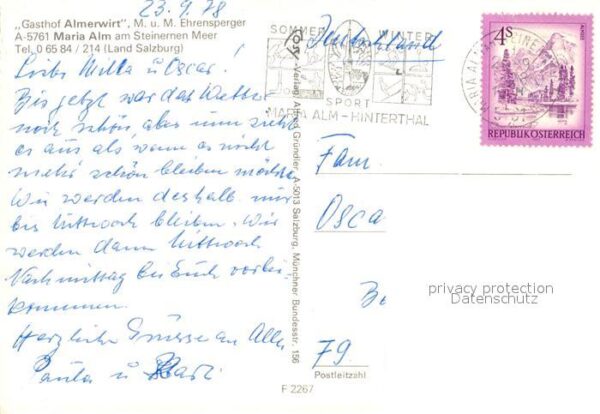 23.9.78
„Gasthof Almerwirt", M. u. M. Ehrensperger
A-5761 Maria Alm am Steinernen Meer
Tel. 0 65 84 / 214 (Land Salzburg)
Liebe Milla u. Oscar.
Bis jetzt war das Wetter
noch schön, aber nun sieht
es aus als wenn es nicht
mehr schön bleiben möchte.
Wir werden deshalb nur
bis Mittwoch bleiben. Wir
werden dann Mittwoch
Nachmittag bei Euch vorbei-
kommen.
Herzliche Grüsse an Alle
Paula u.
Verlag Alfred Gründler, A-5013 Salzburg, Münchner Bundesstr. 156
F 2267
SOMMER WINTER
SPORT
MARIA ALM - HINTERTHAL
Deutschland
4S
REPUBLIK ÖSTERREICH
Fam.
Osca
79
Postleitzahl
privacy protection
Datenschutz